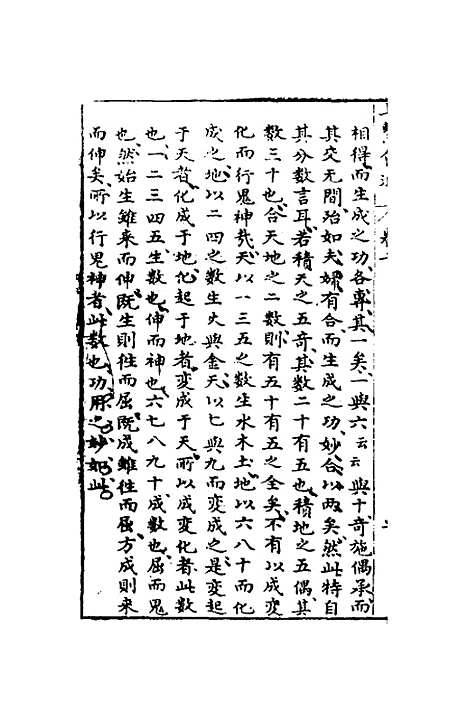 相得而生成之功各專其一矣一與六云云與十奇施偶承而
其交无間治如夫婦有合而生成之功妙合以两矣然此特自
其分數言耳若積天之五奇其數二十有五也積地之五偶其
數三十也合天地之二數則有五十有五之全矣不有以成變
化而行鬼神㦲天以一三五之數生水木土地以六八十而化
成之地以二四之數生火與金天以七與九而變成之是變起
于天者化成于地化起于地者變成于天所以成變化者此數
也一二三四五生數也伸而神也六七八九十成數也屈而鬼
也然始生雖来而伸既生則徃而屈既成雖徃而屈方成則来
而伸矣所以行鬼神者此數也功用之妙如此